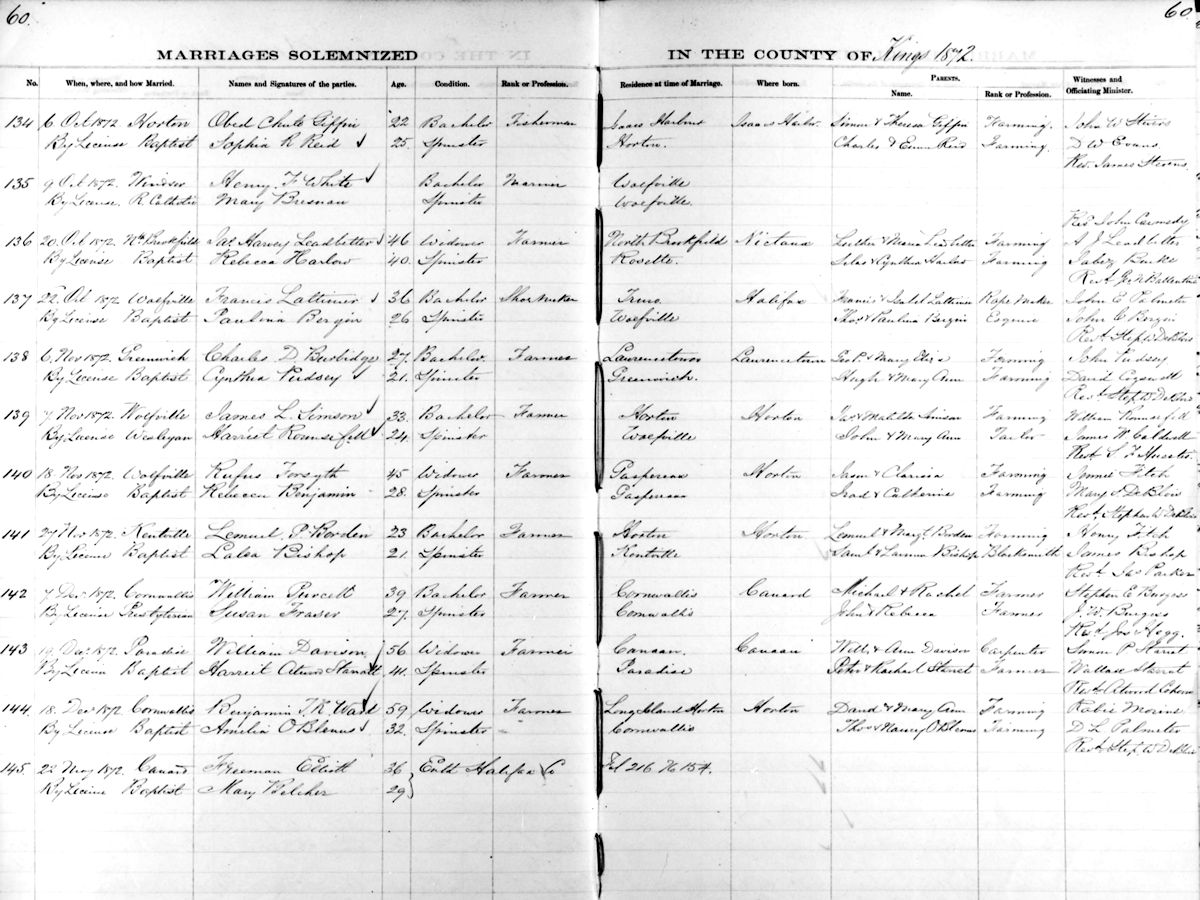 60.
60
MARRIAGES SOLEMNIZED
IN THE COUNTY OF Kings 1872.
No. When, where, and how Married. Names and Signatures of the parties. Age. Condition. Rank or Profession. Residence at time of Marriage. Where born. PARENTS. Name. Rank or Profession. Witnesses and Officiating Minister.
134 6 Oct 1872 Horton Obed Chute Giffin 22 Bachelor Fisherman Isaacs Harbour Isaacs Harbr. Simon & Theresa Giffin Farming. John W Stivers
By License Baptist Sophia R Reid 25. Spinster Horton. Charles & Reid Farming. D W Evans
Rev. James Stevens
135 9 Oct 1872. Windsor Henry F White Bachelor Mariner Wolfville
By License. R. Catholic Mary Bresnan Spinster Wolfville.
Rev John
136 20 Oct 1872 Nth Brookfield Jas Harvey Leadbitter 46 Widower Farmer North Brookfield Nictaux Luther & Maria Leadbitter Farming A J Leadbitter
By License Baptist Rebecca Harlow 40. Spinster Rosette. Silas & Cynthia Harlow Farming
137 22 Oct 1872 Wolfville Francis Lattimer 36 Bachelor Shoe Maker Truro Halifax Francis & Isabel Lattimer Rope Maker John E Palmeter
By License Baptist Paulina Bergin 26 Spinster Wolfville Thos & Paulina Bergin Esquire John C Bergin
Revd Steph W DeBlois
138 6 Nov 1872 Greenwich Charles D Burbidge 27 Bachelor. Farmer Lawrencetown Lawrencetown Geo P. & Mary Eliza Farming John
By License Baptist Cynthia 21. Spinster Greenwich. Hugh & Mary Ann Farming David Cogswell
Revd Step W DeBlois
139 7 Nov 1872 Wolfville James L. Simson 33. Bachelor Farmer Horton Horton & Matilda Simson Farming William Rounsefell
By License Wesleyan Harriet Rounsefell 24. Spinster Wolfville John & Mary Ann Tailor James W Caldwell
Revd S F Huestis
140 18 Nov 1872 Wolfville Rufus Forsyth 45 Widower Farmer Gaspereau Horton Jason & Clarissa Farming Fitch
By License Baptist Rebecca Benjamin 28. Spinster Gaspereau & Catherine Farming Mary S DeBlois
Revd Stephen W DeBlois
141 27 Nov 1872. Kentville Lemuel P Borden 23 Bachelor Farmer Horton Horton Lemuel & Mary E Borden Farming Henry Fitch
By License Baptist Bishop 21. Spinster Kentville Saml & Bishop Blacksmith James Bishop
Revd Jas Parker
142 7 Dec 1872 Cornwallis William Purcell 39 Bachelor Farmer Cornwallis Canard Michael & Rachel Farmer Stephen E Burgess
By License Presbyterian Susan Fraser 27. Spinster Cornwallis John & Rebecca Farmer J W Burgess
Revd Jos Hogg.
143 19 Dec 1872 Paradise William Davison 56 Widower Farmer Canaan. Canaan Will. & Ann Davison Carpenter Simon P Starrat
By License Baptist Harriet 41. Spinster Paradise Peter & Rachael Starrat Farmer Wallace Starrat
144 18 Dec 1872 Cornwallis Benjamin 59 Widower Farmer Long Island Horton Horton David & Mary Ann Farming
By License Baptist Amelia O'Blenus 32. Spinster Cornwallis Thos & Nancy O'Blenus Farming D L Palmeter
Revd Step W DeBlois
145. 22 1872. Canard Freeman Elliott 36 Entd Halifax Co Fol 216. No 154.
By License Baptist Mary Belcher 29